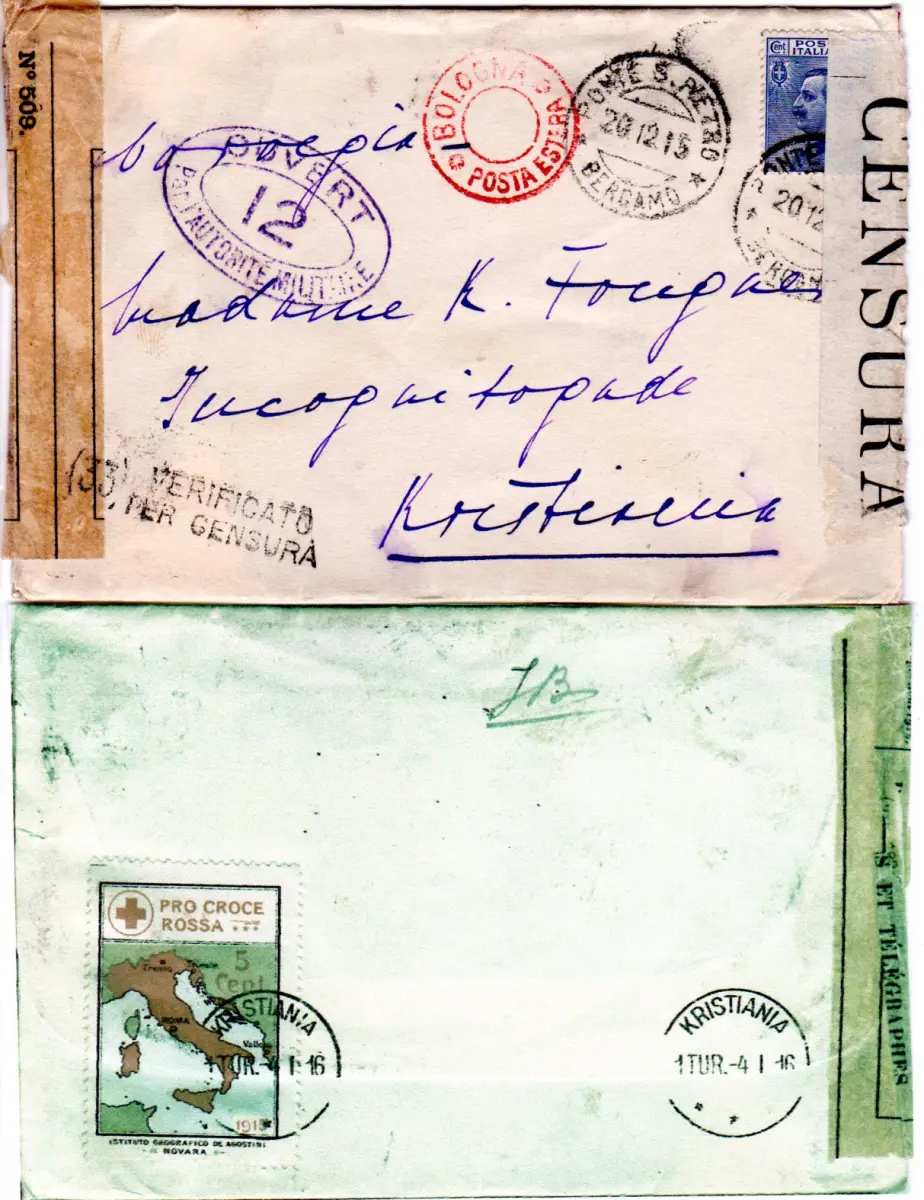 Nº 509.
Cent POS
ITALI
BOLOGNA
POSTA ESTERA
PONTE S. PIETRO
20 12 15
BERGAMO
PONTE
20 12
CENSURA
OUVERT
12
PAR L'AUTORITÉ MILITAIRE
Madame K.
Incognitogade
Kristiania
(33) VERIFICATO
PER CENSURA
JB
PRO CROCE
ROSSA
5
Cent
Trento
Trieste
ROMA
1915
ISTITUTO GEOGRAFICO DE AGOSTINI
NOVARA
KRISTIANIA
1 TUR.-4 I 16
KRISTIANIA
1 TUR.-4 I 16
S ET TÉLÉGRAPHES